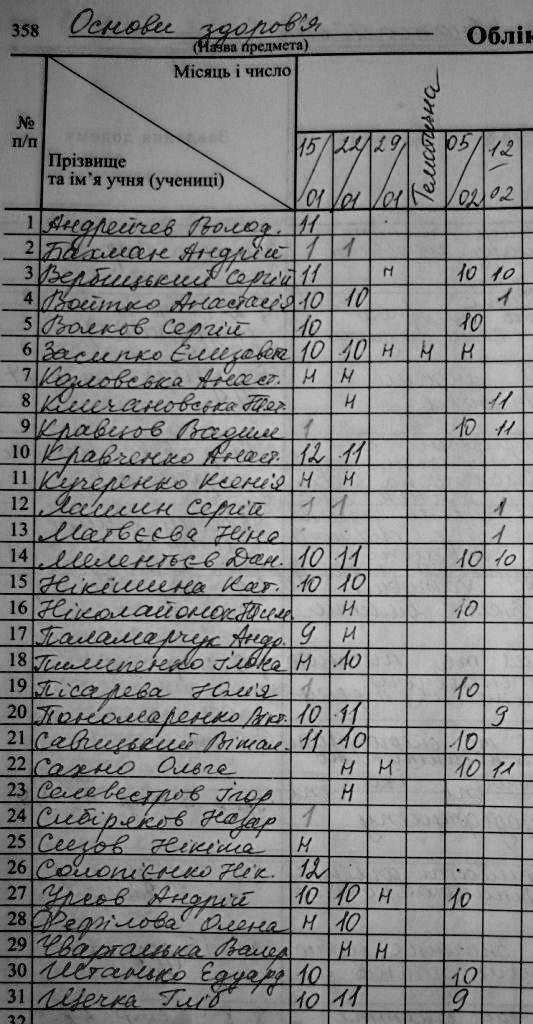 358 Основи здоров'я
(Назва предмета) Облік
Місяць і число
№ п/п
Прізвище
та ім'я учня (учениці)
15/01 22/01 29/01 Тематична 05/02 12/02
1 Андрейчев Волод. 11
2 Бахман Андрій 1 1
3 Вербицький Сергій 11 н 10 10
4 Войтко Анастасія 10 10 1
5 Волков Сергій 10 10
6 Засипко Єлизавет 10 10 н н н
7 Козловська Анаст. н н
8 н 11
9 Кравцов Вадим 1 10 11
10 Кравченко Анаст. 12 11
11 Кучеренко Ксенія н н
12 Сергій 1 1 1
13 Матвєєва Ніна 1
14 Мелентьєв Дан. 10 11 10 10
15 Нікішина Кат. 10 10
16 н 10
17 Паламарчук Андр. 9 н
18 Пилипенко Ілона н 10
19 Пісарева Юлія 1 10
20 Пономаренко Вікт. 10 11 9
21 Савицький Вітал. 11 10 10
22 Сахно Ольга н н 10 11
23 Селевестров Ігор н
24 Сибіряков Назар 1
25 Сизов Нікіта н
26 Солопієнко Нік. 12
27 Урсов Андрій 10 10 н 10
28 Олена н 10
29 Валер н н
30 Едуард 10 10
31 Щечка Гліб 10 11 9
32